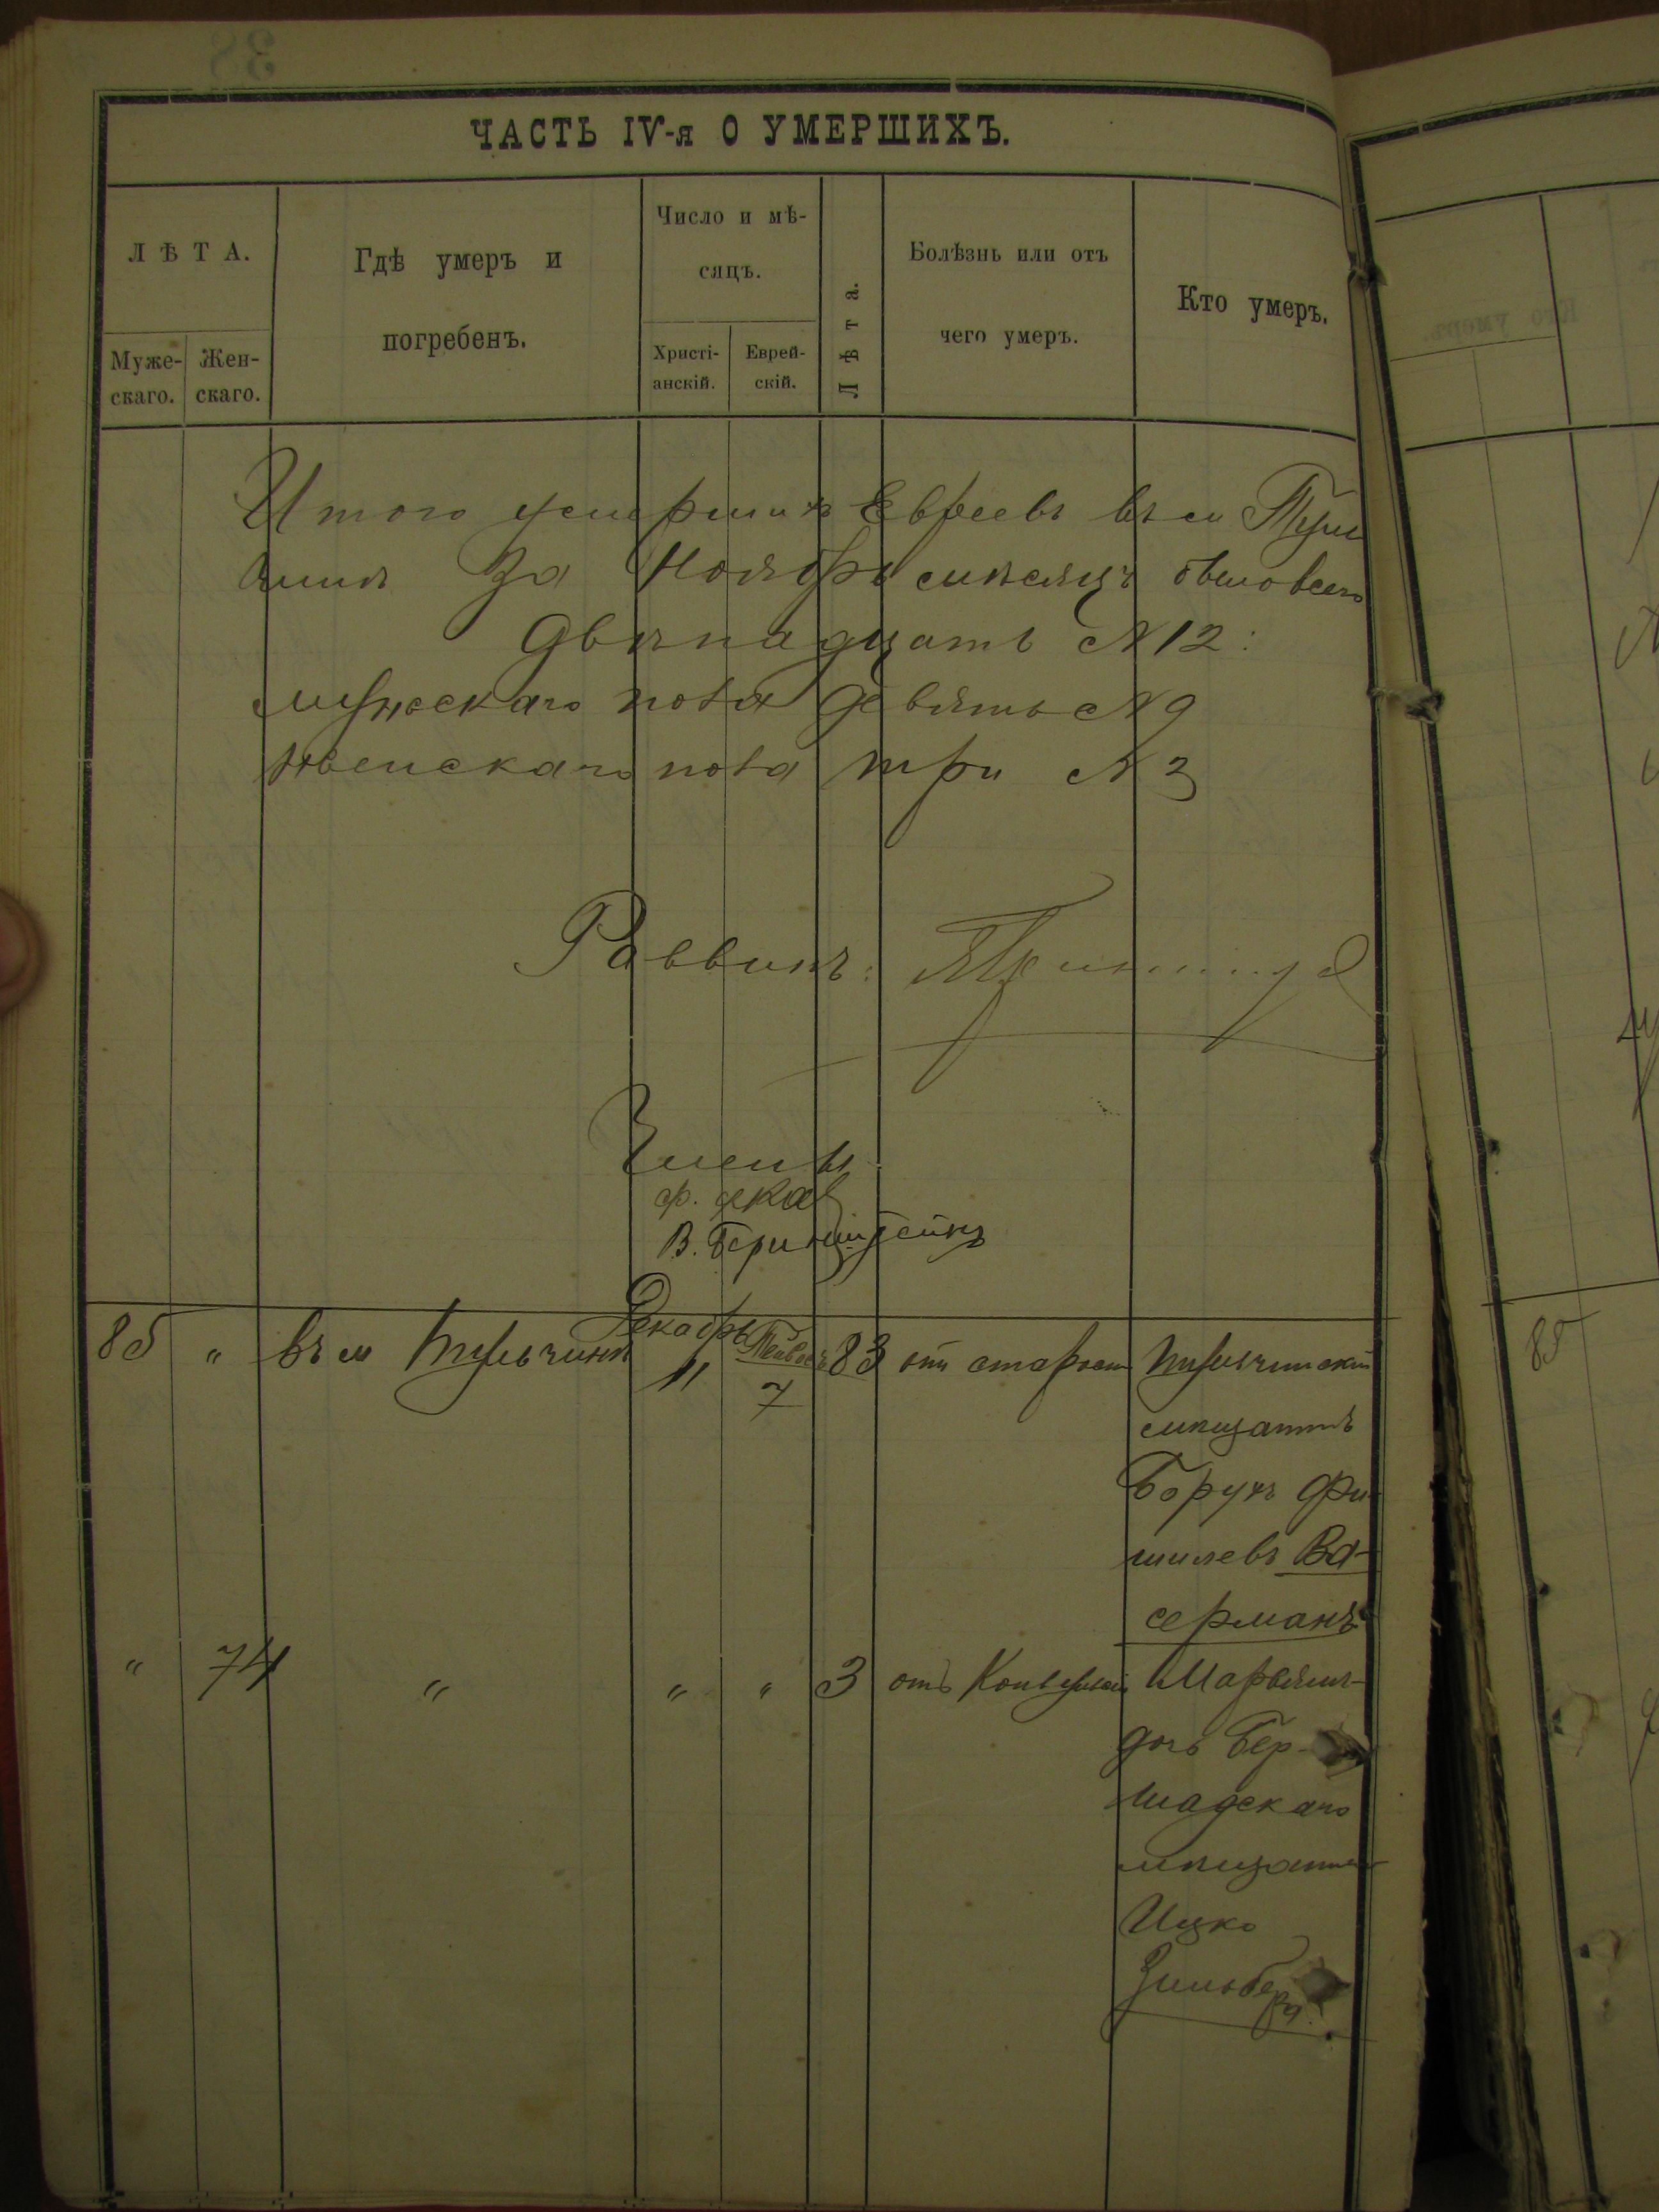 ЧАСТЬ IV-я О УМЕРШИХЪ.
ЛѢТА.
Муже-скаго. Жен-скаго.
Гдѣ умеръ и
погребенъ.
Число и мѣ-
сяцъ.
Христі-анскій. Еврей-скій.
Лѣта.
Болѣзнь или отъ
чего умеръ.
Кто умеръ.
Итого умершихъ Евреевъ въ м Туль
чинѣ За Ноябрь мѣсяцъ было всего
двѣнадцать № 12:
мужескаго пола девять № 9
женскаго пола три № 3
Раввинъ:
Члены
В. Беринштейнъ
85 " въ м Тульчинѣ Декабрь 11 Тейвесъ 7 83 отъ старости Тульчинский
мѣщанинъ
Борухъ Фи-
шилевъ Ва-
серманъ
" 74 " " " 3 отъ Конвульсій Марьямъ
дочь Бер-
шадскаго
мѣщанина
Ицко
Зильберга.
85